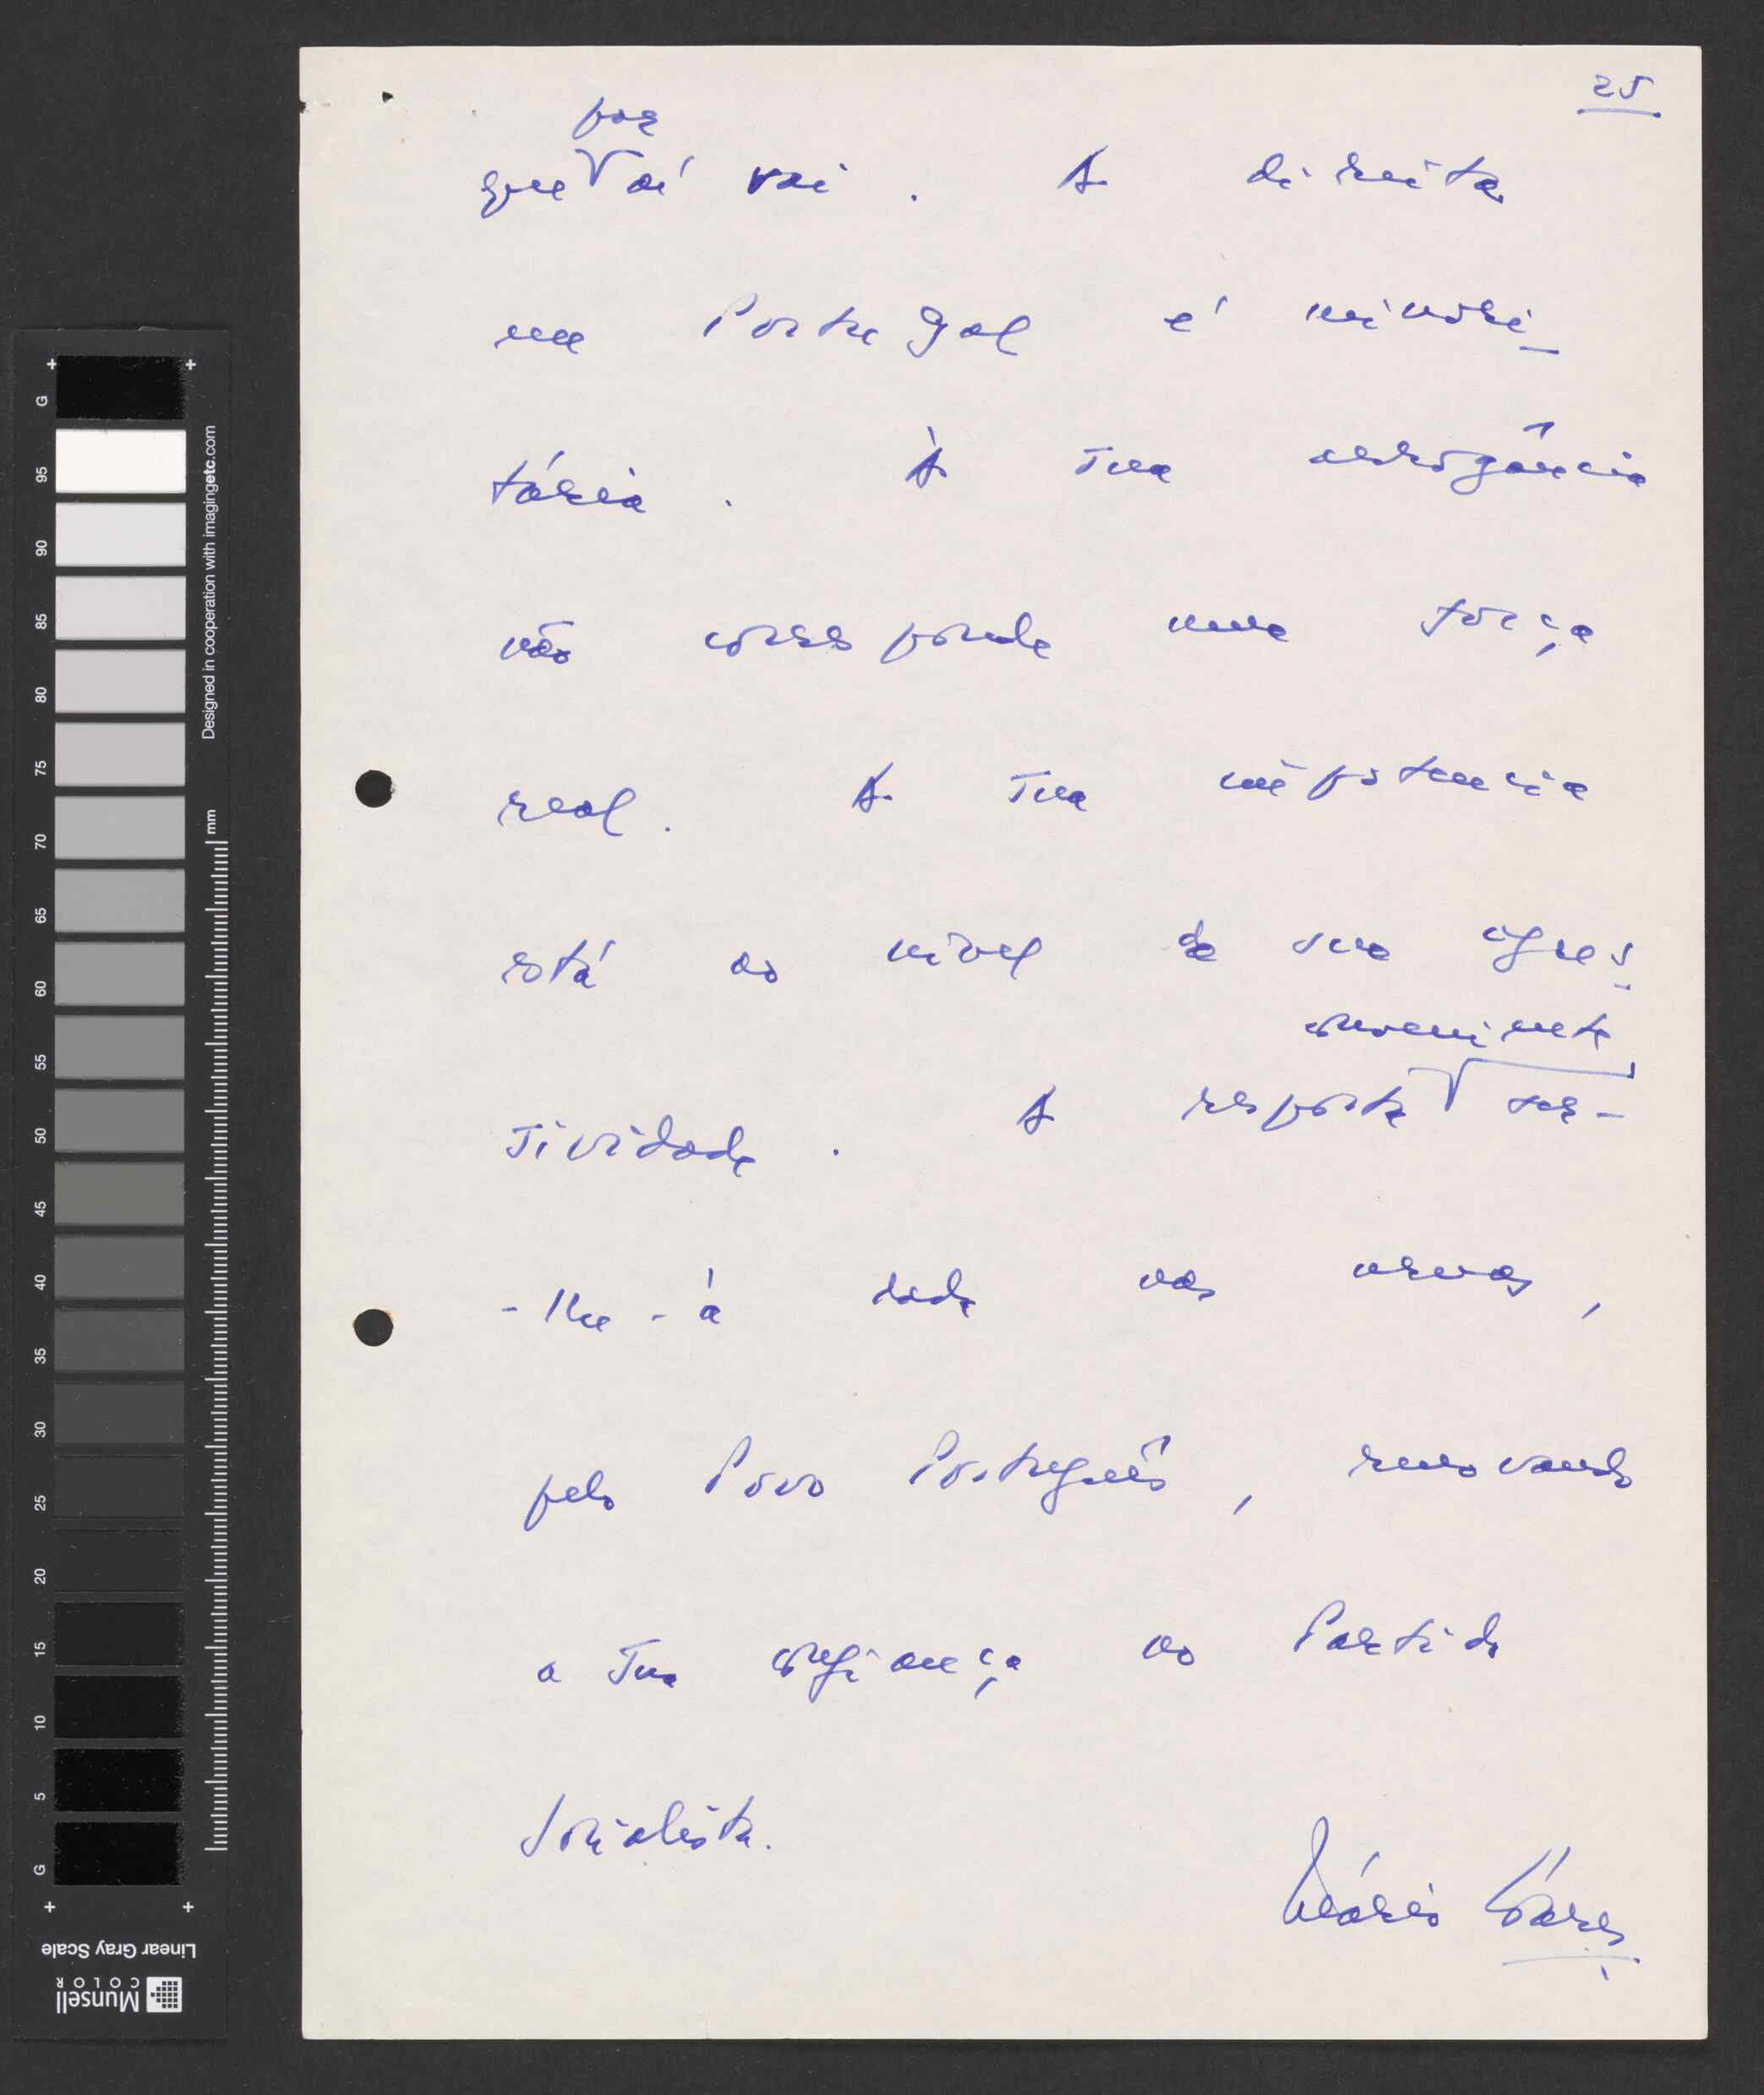 25
por
que aí vai. A direita
em Portugal é minori-
tária. À sua arrogância
não corresponde uma força
real. A sua impotencia
está ao nível da sua agres-
conveniente
sividade. A resposta ser-
-lhe-á dada nas urnas,
pelo Povo Português, renovando
a sua confiança no Partido
Socialista.
Mário Soares
G 95 90 85 80 75 70 65 60 55 50 45 40 35 30 25 20 15 10 5 G
Designed in cooperation with imagingetc.com
mm
Linear Gray Scale
Munsell
COLOR